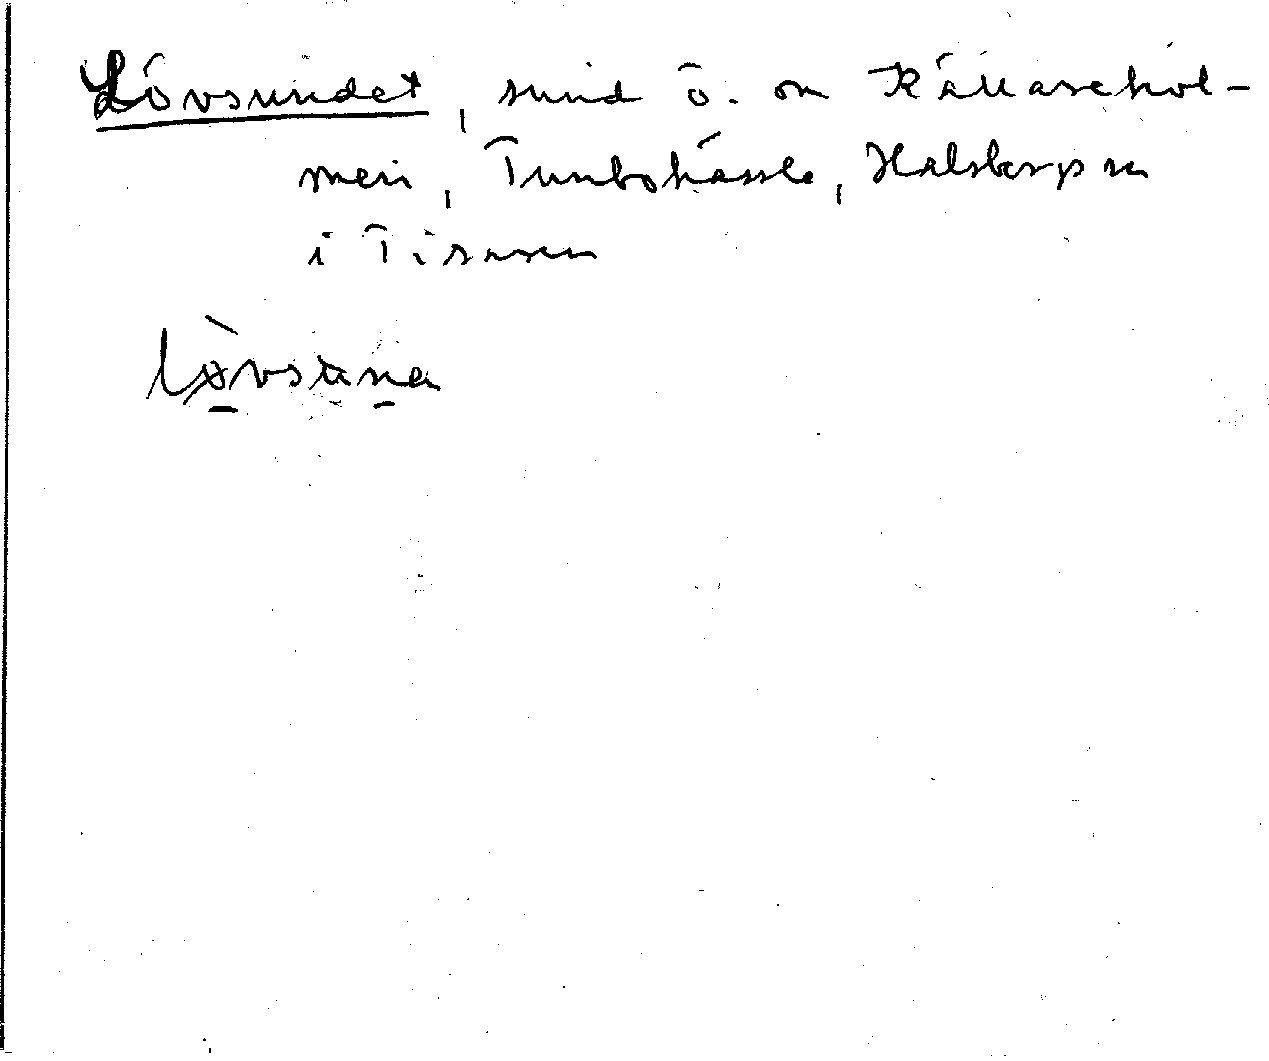 Lövsundet, sund ö. om Källarehol-
men, Tunbohässle, Halsberg sn
i Tisaren